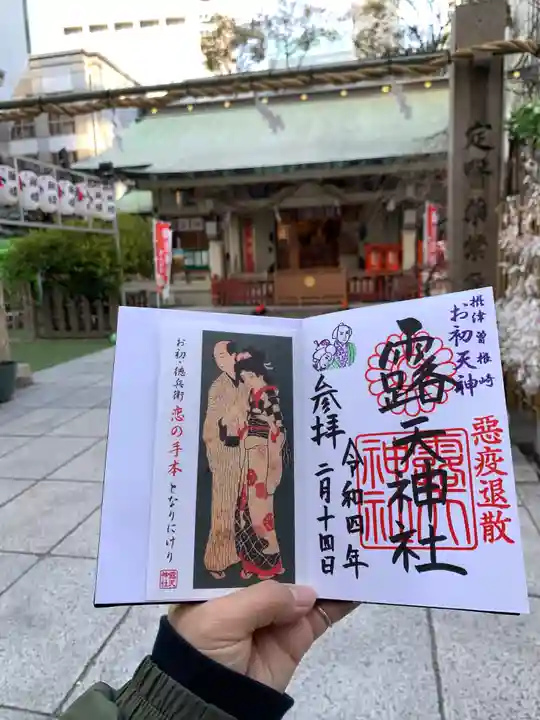 お初・徳兵衛
恋の手本となりにけり
露天神社
摂津曽根崎
お初天神
露天神社
悪疫退散
露天神社
参拝
令和四年
二月十四日